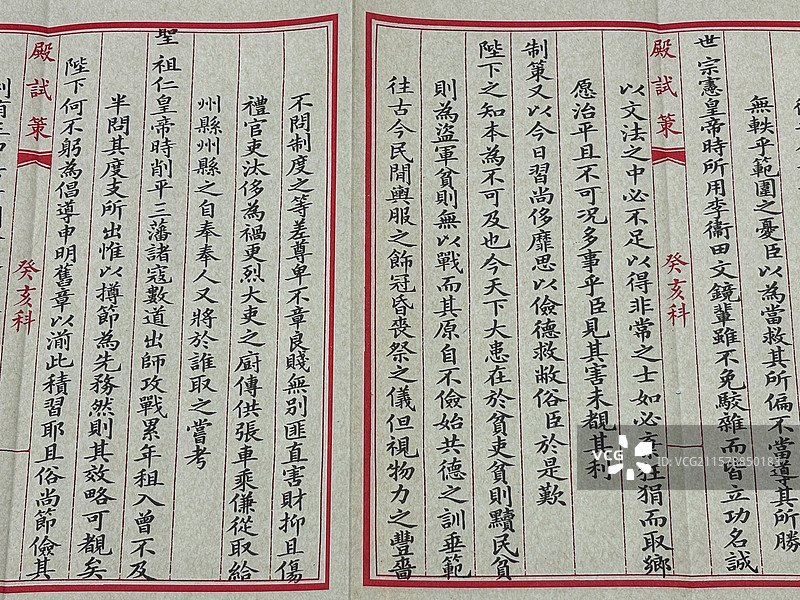 無軼乎範圍之憂臣以為當救其所偏不當導其所勝
世宗憲皇帝時所用李衞田文鏡輩雖不免駮雜而皆立功名誠
殿試策 癸亥科
以文法之中必不足以得非常之士如必棄狂狷而取鄉
愿治平且不可况多事乎臣見其害未覩其利
制策又以今日習尚侈靡思以儉德救敝俗臣於是歎
陛下之知本為不可及也今天下大患在於貧吏貧則黷民貧
則為盜軍貧則無以戰而其原自不儉始共德之訓垂範
往古今民間輿服之飾冠昏喪祭之儀但視物力之豐嗇
不問制度之等差尊卑不章良賤無別匪直害財抑且傷
禮官吏汰侈為禍更烈大吏之廚傳供張車乘傔從取給
州縣州縣之自奉奉人又將於誰取之嘗考
聖祖仁皇帝時削平三藩諸寇數道出師攻戰累年租入曾不及
半問其度支所出惟以撙節為先務然則其效略可覩矣
陛下何不躬為倡導申明舊章以湔此積習耶且俗尚節儉其
殿試策 癸亥科
VCG
VCG ID:VCG211578850181